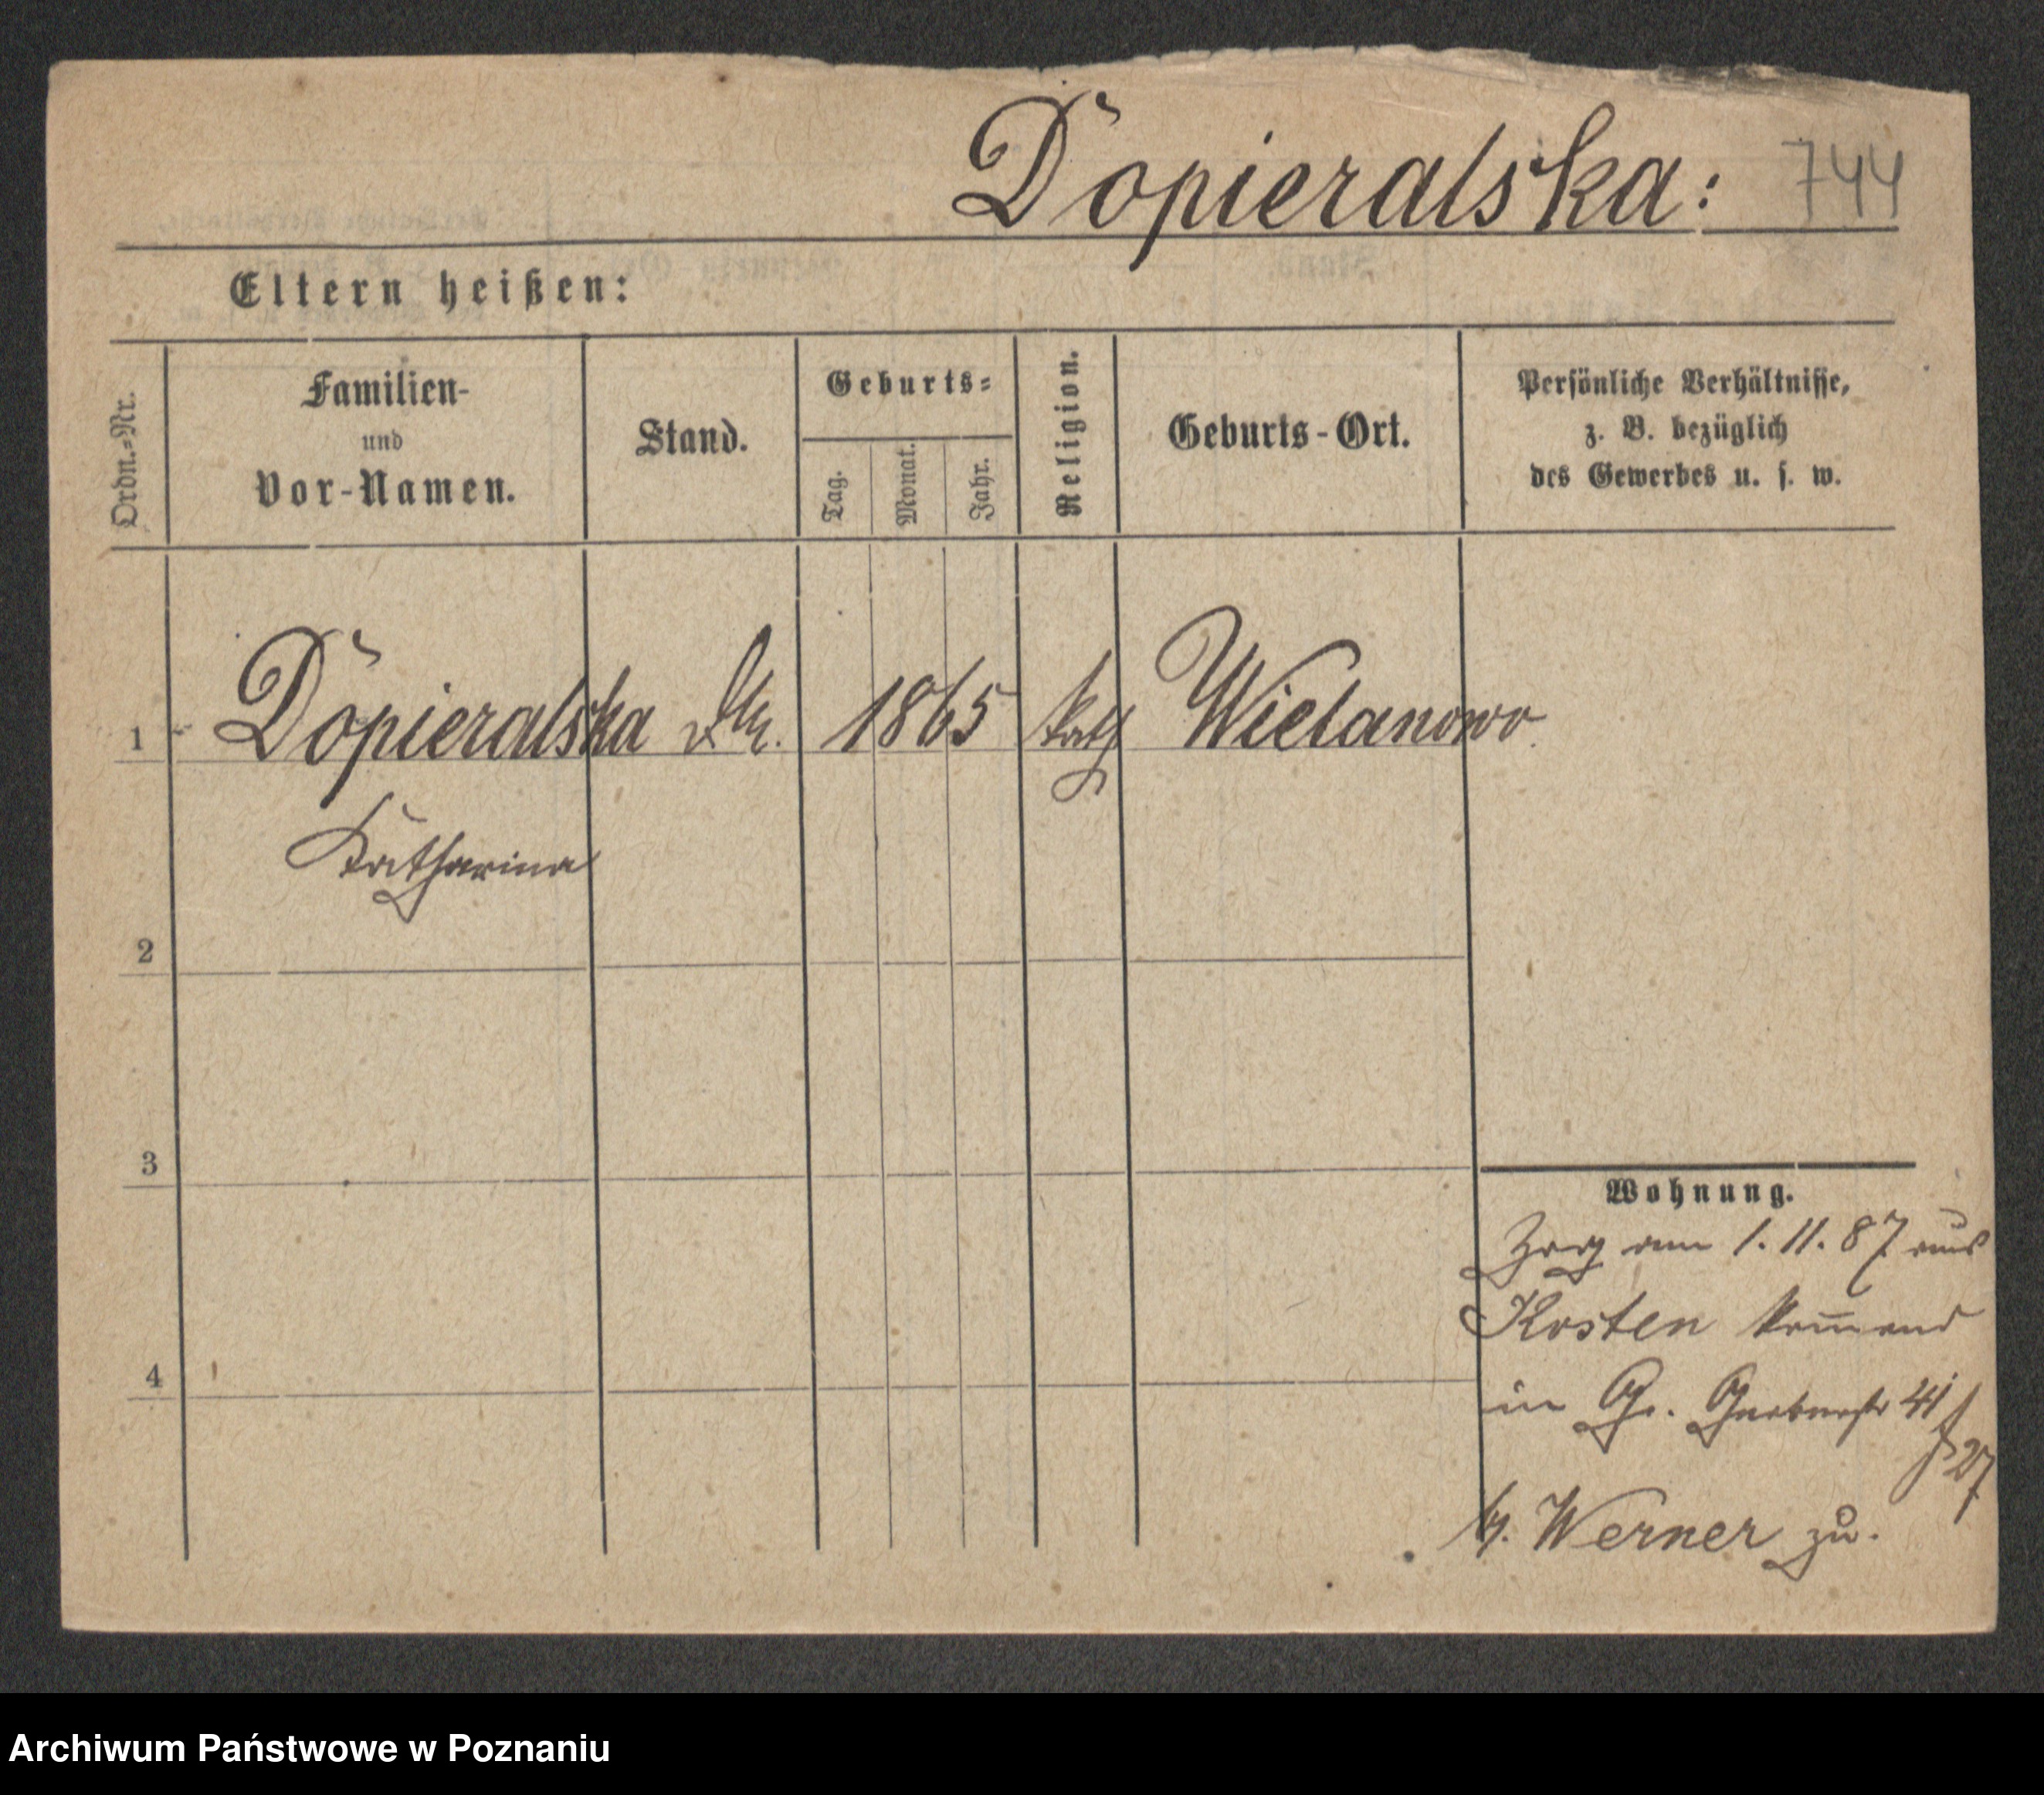 Dopieralska: 744
Eltern heißen:
Ordn.-Nr.
Familien-
und
Vor-Namen.
Stand.
Geburts-
Tag.
Monat.
Jahr.
Religion.
Geburts-Ort.
Persönliche Verhältnisse,
z. B. bezüglich
des Gewerbes u. s. w.
1 Dopieralska 1865 kath Wielanowo.
Katharina
2
3
4
Wohnung.
Zog am 1. 11. 87 aus
Kosten kom̅end
in Gr. Gerberstr 41
27
Werner zu.
Archiwum Państwowe w Poznaniu